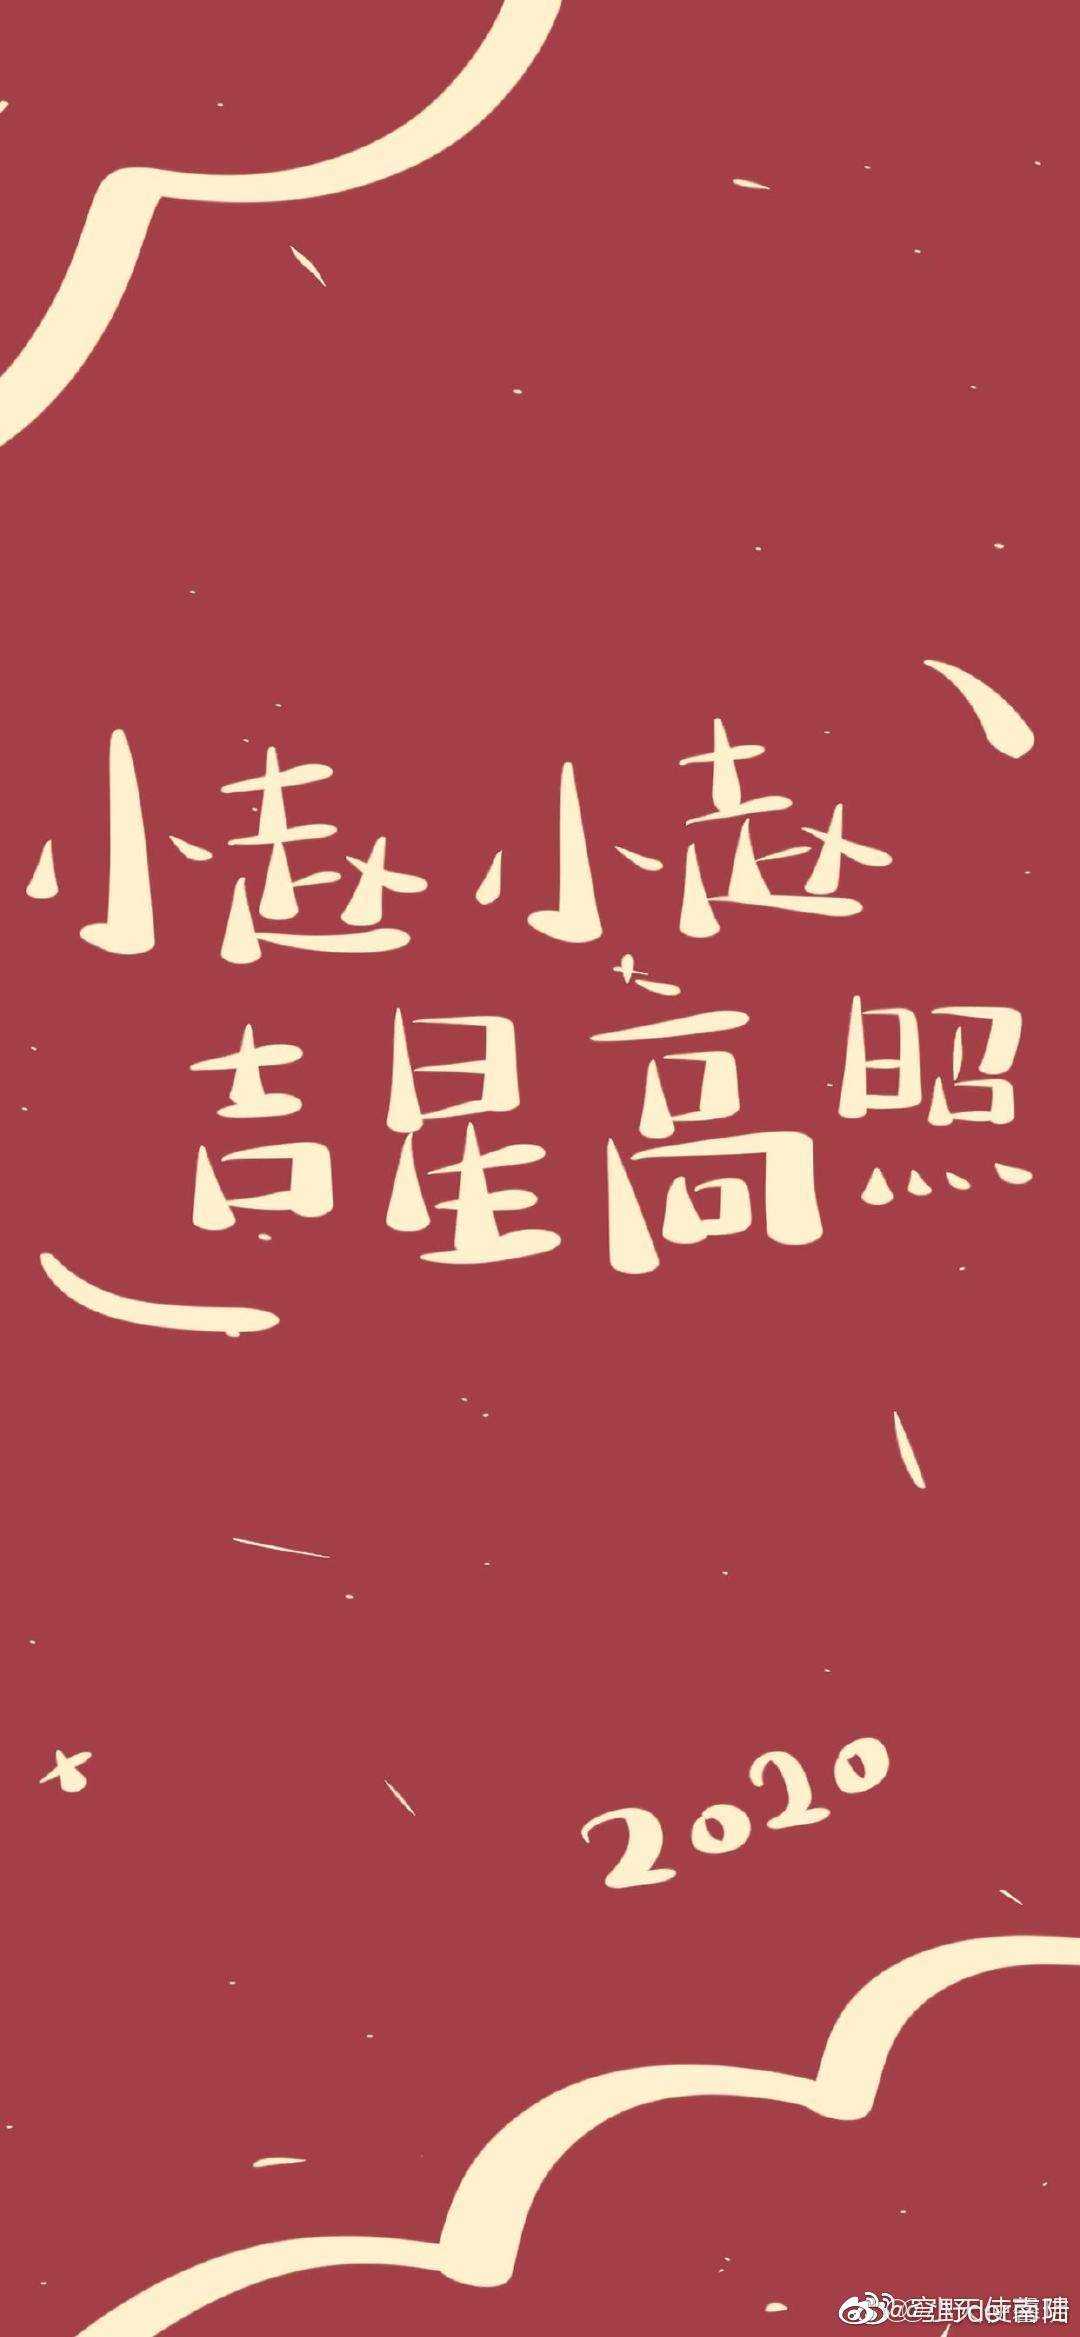 小赵小赵
吉星高照
2020